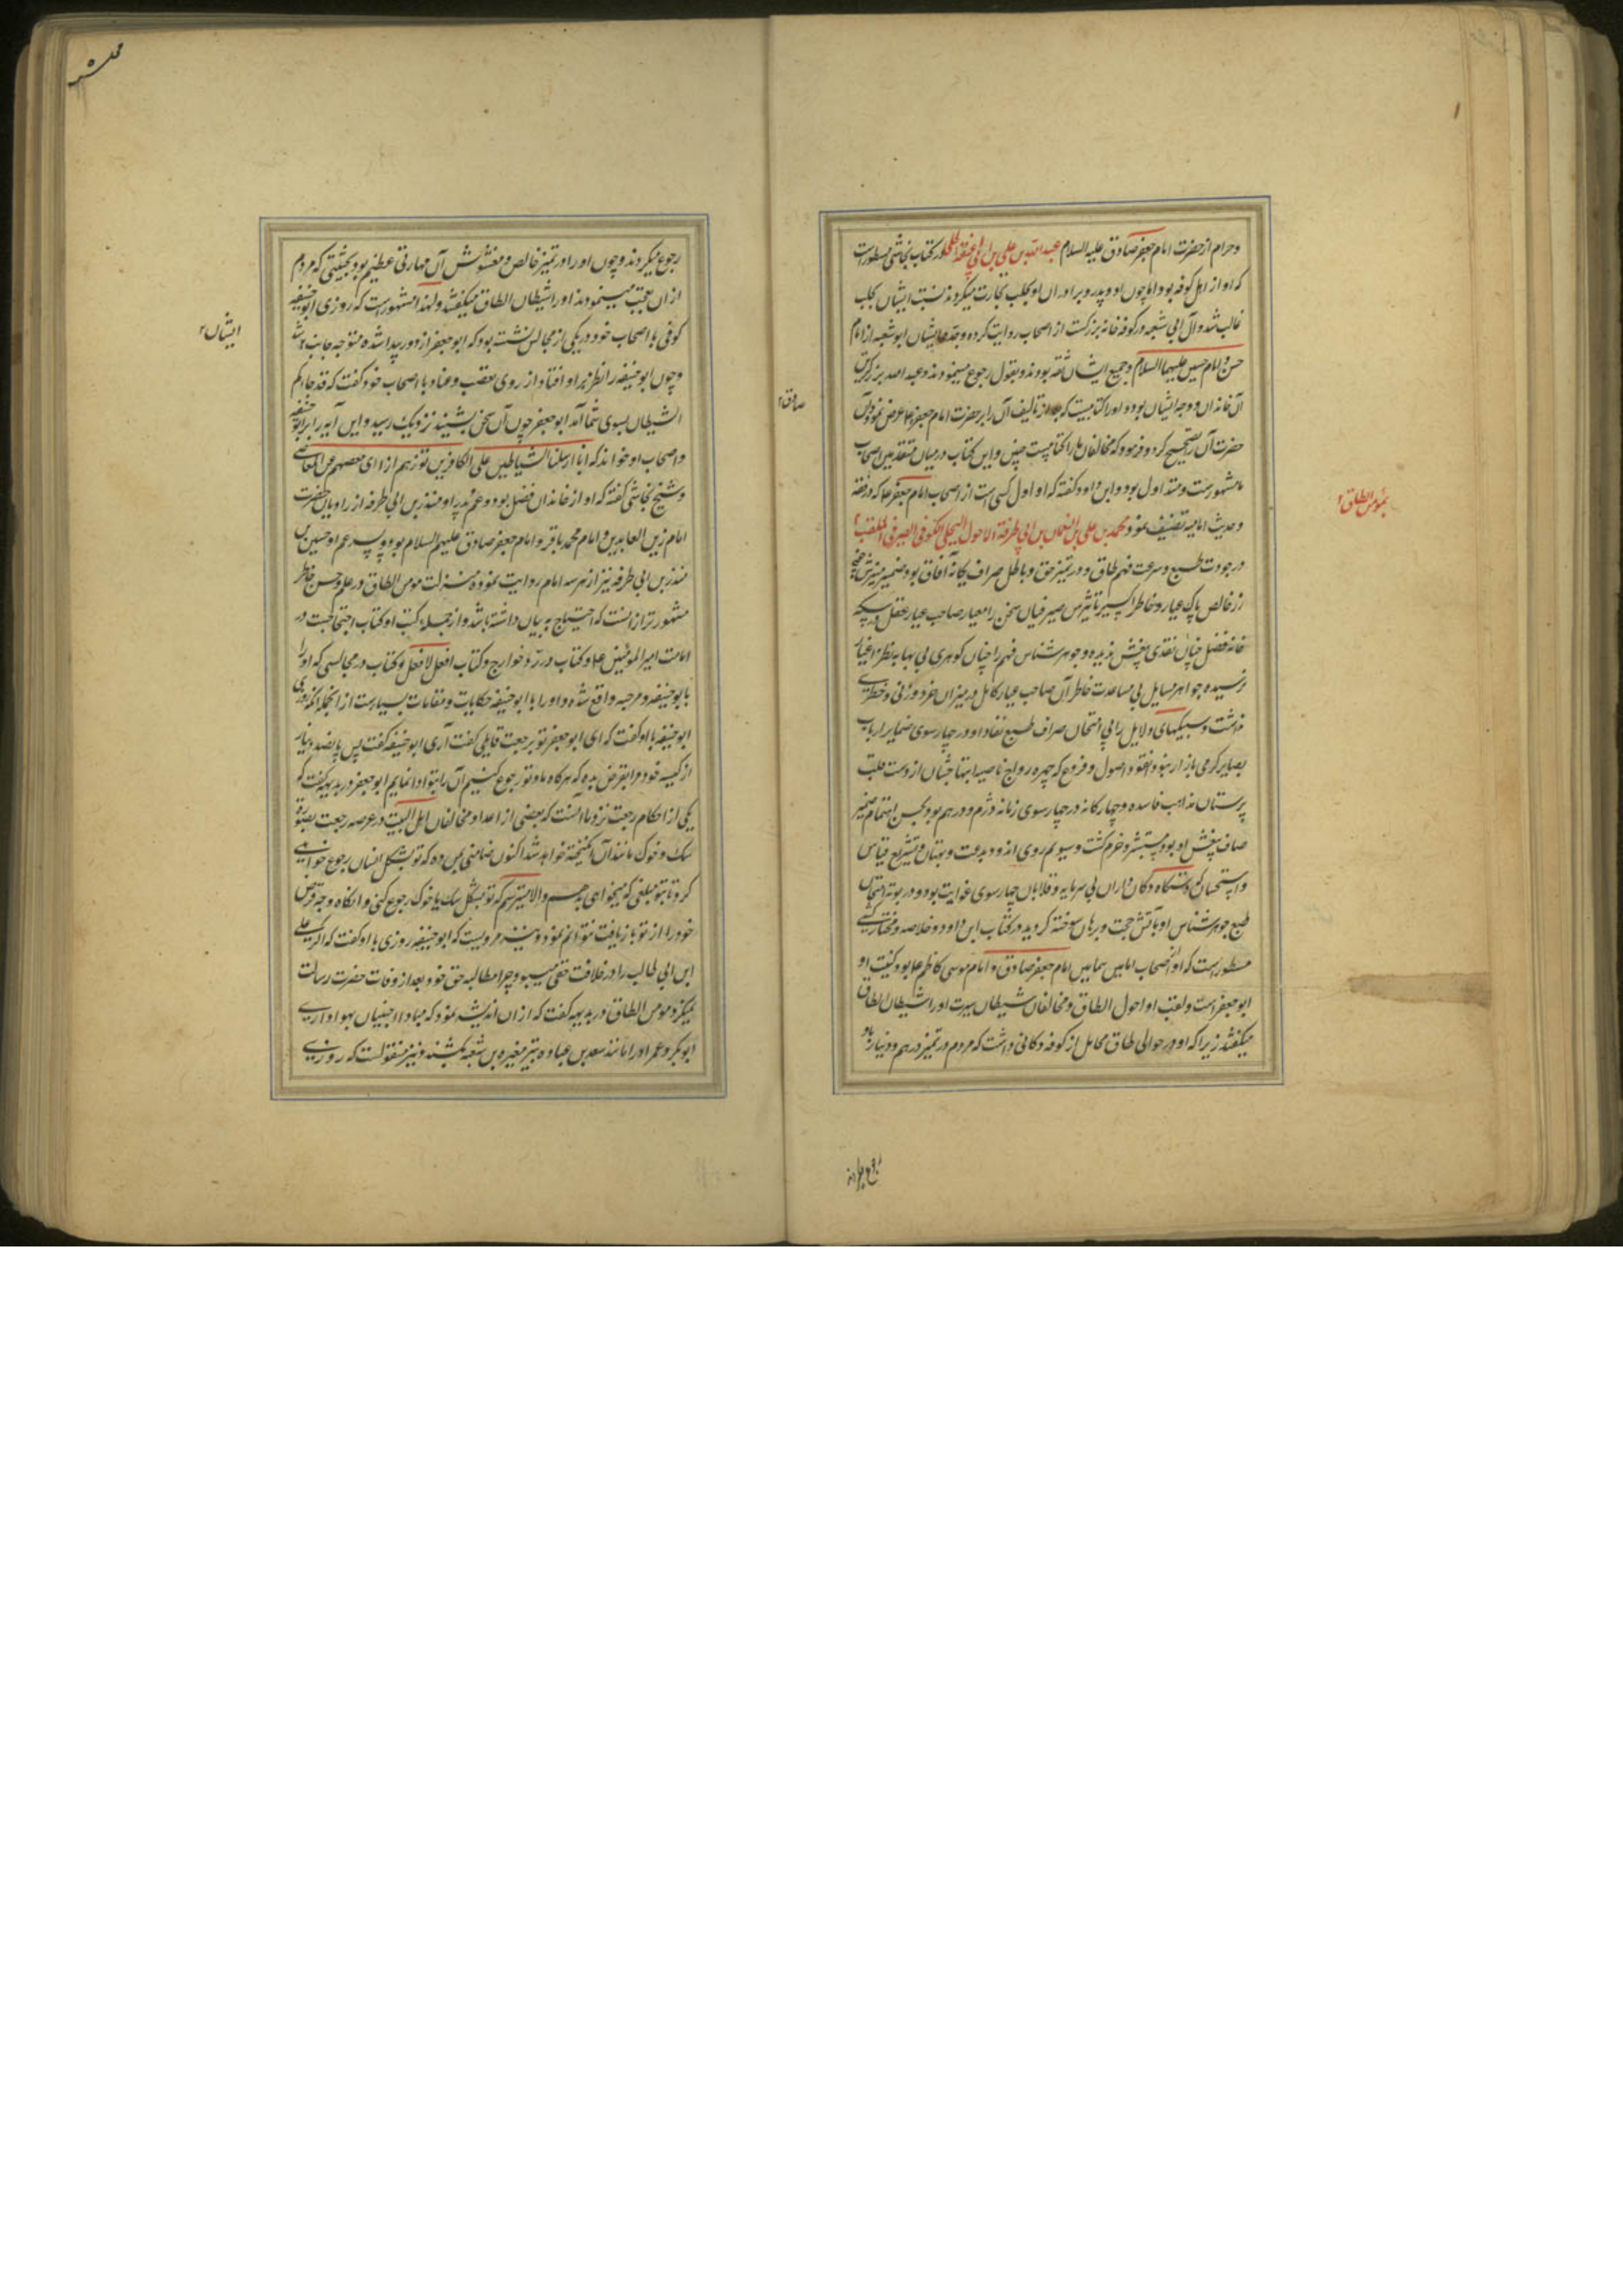 وحرام از حضرت امام جعفر صادق علیه السلام عبد الله بن علی بن ابی شعبة الحلبی در کتاب نجاشی مسطور است
که او از اهل کوفه بود اما چون او و پدر و برادران او بحلب تجارت میکردند نسبت ایشان بحلب
غالب شد و آل ابی شعبه در کوفه خانه بزرگست از اصحاب روایت کرده وجد ایشان ابو شعبه از امام
حسن و امام حسین علیهما السلام و جمیع ایشان ثقه بودند و بقول رجوع مینمودند و عبد الله بزرگترین
آن خاندان و وجه ایشان بود و او را کتابیست که بعد از تالیف آن را بر حضرت امام جعفر ع عرض نمود و آن
صادق
حضرت آن را تصحیح کرد و فرمود که مخالفان ما را کتابیست چنین و این کتاب در میان متقدمین اصحاب
ما مشهور است و متداول بود و ابن داود گفته که او اول کسی است از اصحاب امام جعفر ع که در فقه
و حدیث امامیه تصنیف نمود محمد بن علی بن النعمان بن ابی طرفة الاحول البجلی الکوفی الصیرفی الملقب
بمؤمن الطاق
در جودت طبع و سرعت فهم طاق و در تمییز حق و باطل صراف یگانه آفاق بود ضمیر منیرش
زر خالص پاک عیار و خاطر اکسیر تاثیرش صیرفیان سخن را معیار صاحب عیار عقل در سکه
خانه فضل چنان نقدی بیغش ندیده و جوهر شناس فهم را چنان گوهری بی بها بنظر اعتبار
نرسیده جواهر مسایل بی مساعدت خاطر آن صاحب عیار کامل در میزان خرد وزنی و خطری
نداشت و سبیکهای دلایل را بی امتحان صراف طبع نقاد او در چارسوی ضمایر ارباب
بصایر گرمی بازار نبود نقود اصول و فروع که چهره رواج ناصیه ابتهاجشان از دست قلب
پرستان مذاهب فاسده و چهارگانه در چهارسوی زمانه دژم و درهم بود بحسن اهتمام ضمیر
صاف بیغش او بود مستبشر و خرم گشت و سیوم روی اندود بدعت و بهتان و تشریع قیاس
و استحسان که دستگاه دکان داران بی سرمایه و قلابان چهارسوی غوایت بود در بوته امتحان
طبع جوهر شناس او بآتش حجت و برهان سوخته گردید در کتاب ابن داود و خلاصه و مختار کشی
مسطور است که او از اصحاب امامین همامین امام جعفر صادق و امام موسی کاظم ع بود و کنیت او
ابو جعفر است و لقب او احول الطاق و مخالفان شیطان سیرت او را شیطان الطاق
میگفتند زیرا که او در حوالی طاق محامل از کوفه دکانی داشت که مردم در تمییز درهم و دینار باو
رجوع میکردند و چون او را در تمییز خالص و مغشوش آن مهارتی عظیم بود بحیثیتی که مردم
از ان تعجب مینمودند او را شیطان الطاق میگفتند و لهذا مشهور است که روزی ابو حنیفه
کوفی با اصحاب خود در یکی از مجالس نشسته بود که ابو جعفر از دور پیدا شده متوجه جانب شد
ایشان
و چون ابو حنیفه را نظر بر او افتاد از روی تعصب و عناد با اصحاب خود گفت که قد جاءکم
الشیطان بسوی شما آمد ابو جعفر چون آن سخن بشنید نزدیک رسید و این آیه را بر ابو حنیفه
و اصحاب او خواند که انا ارسلنا الشیاطین علی الکافرین تؤزهم ازا ای
و شیخ نجاشی گفته که او از خاندان فضل بود و عم پدر او منذر بن ابی طرفه از راویان حضرت
امام زین العابدین و امام محمد باقر و امام جعفر صادق علیهم السلام بود و پسر عم او حسین بن
منذر بن ابی طرفه نیز از هر سه امام روایت نموده منزلت مومن الطاق در علم و حسن خاطر
مشهورتر از انست که احتیاج به بیان داشته باشد و از جمله کتب او کتاب احتجاجست در
امامت امیر المومنین ع و کتاب در رد خوارج و کتاب افعل لا تفعل و کتاب در مجالسی که او را
با ابو حنیفه و مرجیه واقع شده و او را با ابو حنیفه حکایات و مقامات بسیار است از انجمله آنکه روزی
ابو حنیفه با او گفت که ای ابو جعفر تو برجعت قایلی گفت آری ابو حنیفه گفت پس پانصد دینار
از کیسه خود مرا بقرض بده که هرگاه ما و تو رجوع کنیم آن را بتو ادا نمایم ابو جعفر در بدیهه گفت که
یکی از احکام رجعت نزد ما آنست که بعضی از اعدا و مخالفان اهل البیت در عرصه رجعت بصورت
سک و خوک مانند آن انگیخته خواهد شد اکنون ضامنی بمن ده که تو بشکل انسان رجوع خواهی
کرد تا بتو مبلغی که میخواهی بدهم و الا میترسم که تو بشکل سک یا خوک رجوع کنی و انگاه وجه قرض
خود را از تو بازیافت نتوانم نمود و نیز مرویست که ابو حنیفه روزی با او گفت که اگر علی
ابن ابی طالب را در خلافت حقی میبود چرا مطالبه حق خود بعد از وفات حضرت رسالت
نمیکرد مومن الطاق در بدیهه گفت که از ان اندیشه نمود که مبادا جنیان بهواداری
ابوبکر و عمر او را مانند سعد بن عباده بتیر مغیره بن شعبه بکشند و نیز منقولست که روزی